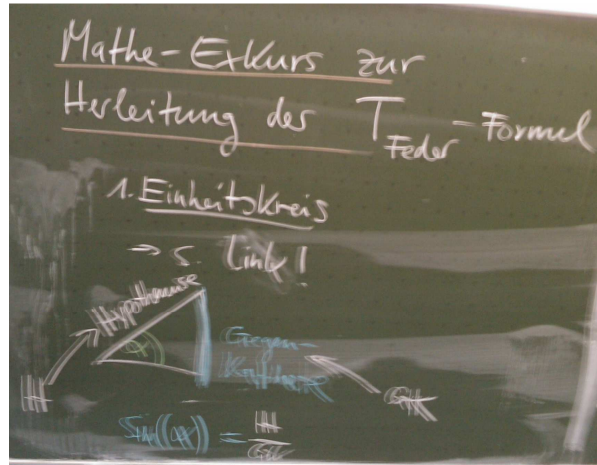 Mathe-Exkurs zur
Herleitung der T_Feder-Formel
1. Einheitskreis
→ s. Link!
Hypothenuse
α
Gegen-
Kathete
H
GK
Sin(α) = H
GK